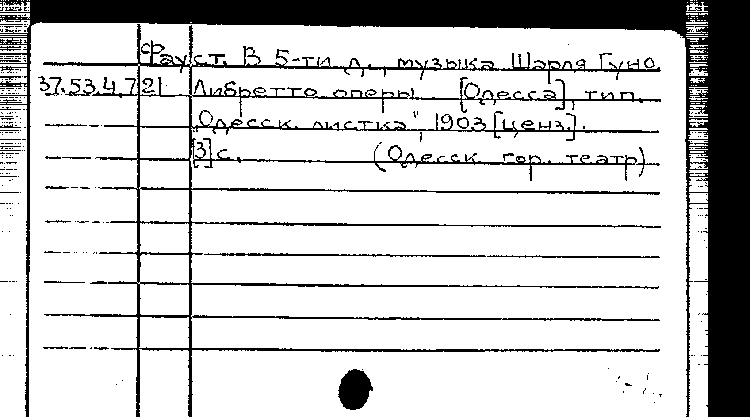 Фауст. В 5-ти д., музыка Шарля Гуно.
37.53.4.721 Либретто оперы. [Одесса], тип.
„Одесск. листка", 1903 [ценз.].
[3] с. (Одесск. гор. театр)